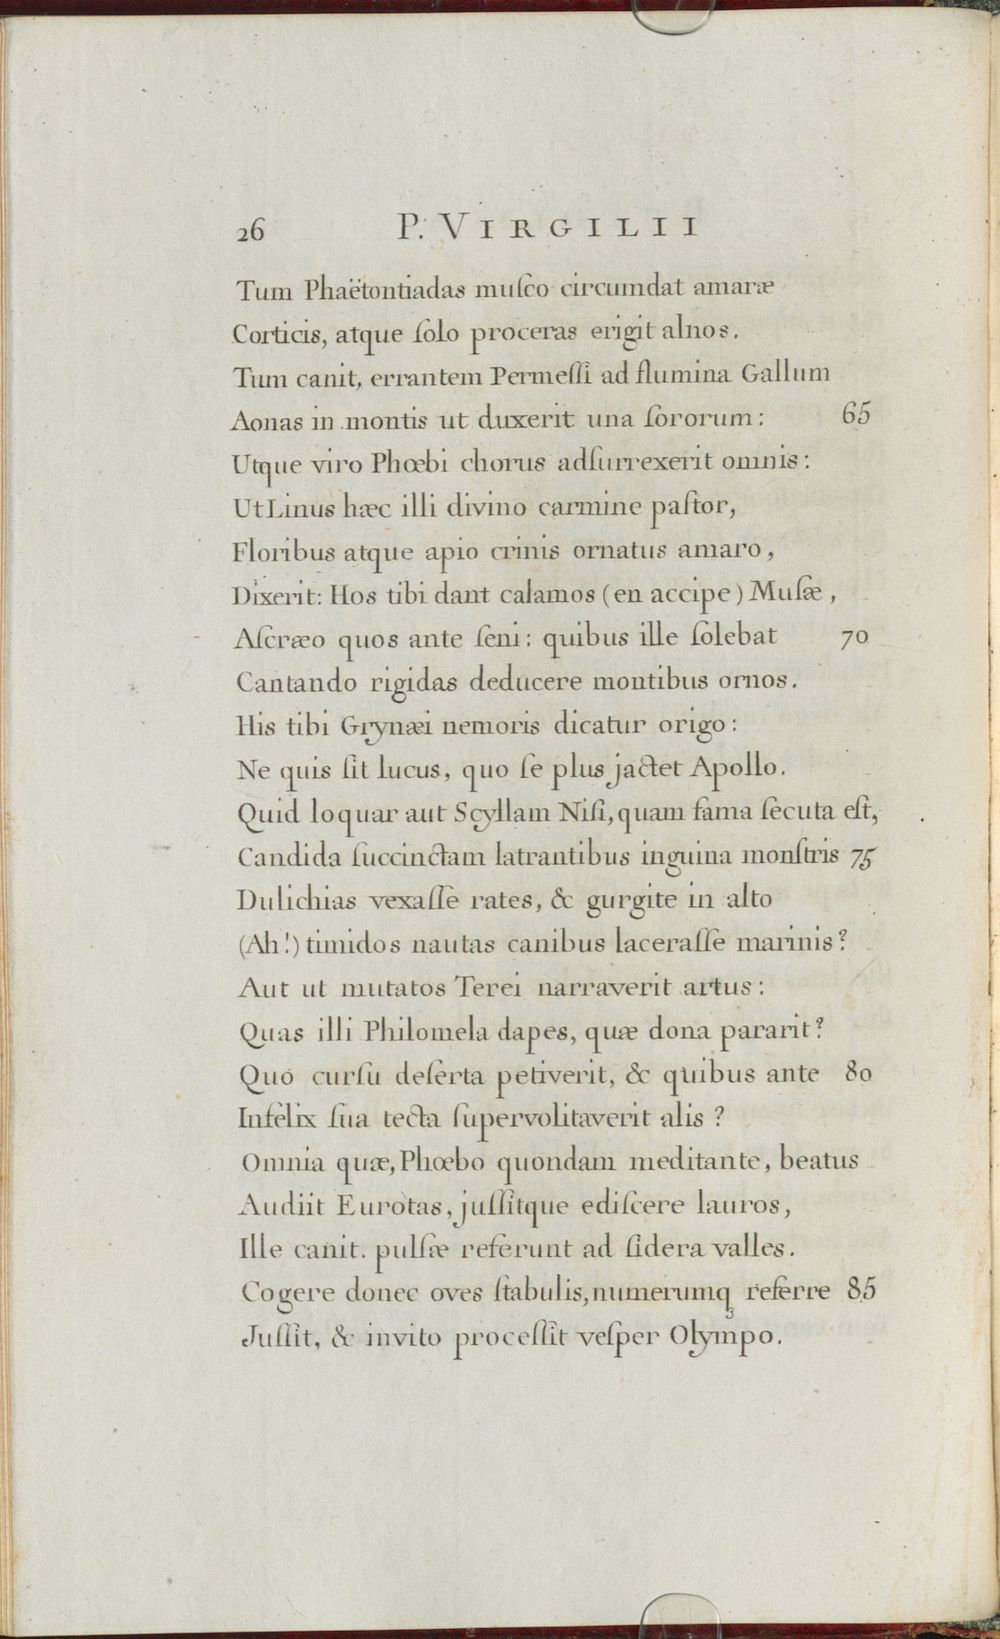 26 P. VIRGILII
Tum Phaëtontiadas muſco circumdat amaræ
Corticis, atque ſolo proceras erigit alnos.
Tum canit, errantem Permeſſi ad flumina Gallum
Aonas in montis ut duxerit una ſororum: 65
Utque viro Phœbi chorus adſurrexerit omnis:
Ut Linus hæc illi divino carmine paſtor,
Floribus atque apio crinis ornatus amaro,
Dixerit: Hos tibi dant calamos (en accipe) Muſæ,
Aſcræo quos ante ſeni: quibus ille ſolebat 70
Cantando rigidas deducere montibus ornos.
His tibi Grynæi nemoris dicatur origo:
Ne quis ſit lucus, quo ſe plus jactet Apollo.
Quid loquar aut Scyllam Niſi, quam fama ſecuta eſt,
Candida ſuccinctam latrantibus inguina monſtris 75
Dulichias vexaſſe rates, & gurgite in alto
(Ah!) timidos nautas canibus laceraſſe marinis?
Aut ut mutatos Terei narraverit artus:
Quas illi Philomela dapes, quæ dona pararit?
Quo curſu deſerta petiverit, & quibus ante 80
Infelix ſua tecta ſupervolitaverit alis?
Omnia quæ, Phœbo quondam meditante, beatus
Audiit Eurotas, juſſitque ediſcere lauros,
Ille canit. pulſæ referunt ad ſidera valles.
Cogere donec oves ſtabulis, numerumqꝫ referre 85
Juſſit, & invito proceſſit veſper Olympo.